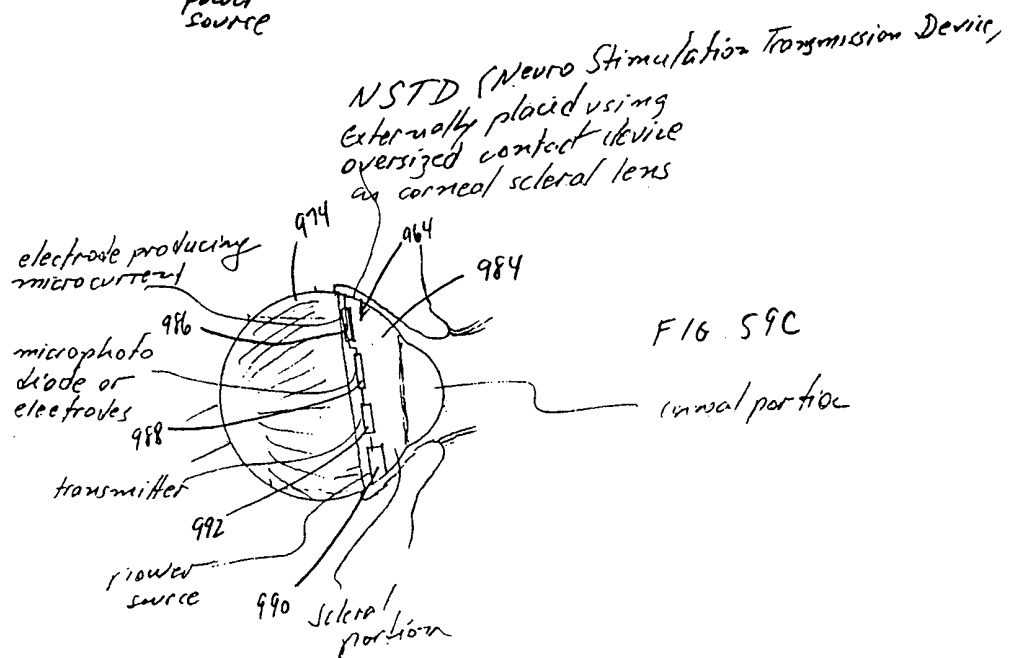 power
source
NSTD (Neuro Stimulation Transmission Device,
Externally placed using
oversized contact device
as corneal scleral lens
974
964
984
electrode producing
microcurrent
986
FIG 59C
microphoto
diode or
electrodes
988
corneal portion
transmitter
992
power
source
990
scleral
portion